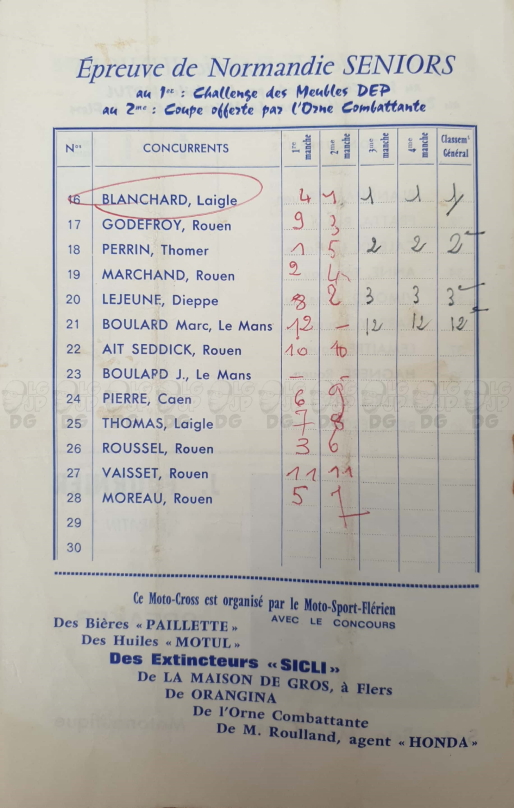 Épreuve de Normandie SENIORS
au 1er : Challenge des Meubles DEP
au 2me : Coupe offerte par l'Orne Combattante
Nos CONCURRENTS 1re manche 2me manche 3me manche 4me manche Classemt Général
16 BLANCHARD, Laigle 4 1 1 1 1
17 GODEFROY, Rouen 9 3
18 PERRIN, Thomer 1 5 2 2 2
19 MARCHAND, Rouen 2 4
20 LEJEUNE, Dieppe 8 2 3 3 3
21 BOULARD Marc, Le Mans 12 – 12 12 12
22 AIT SEDDICK, Rouen 10 10
23 BOULARD J., Le Mans – –
24 PIERRE, Caen 6 9
25 THOMAS, Laigle 7 8
26 ROUSSEL, Rouen 3 6
27 VAISSET, Rouen 11 11
28 MOREAU, Rouen 5 7
29
30
Ce Moto-Cross est organisé par le Moto-Sport-Flérien
AVEC LE CONCOURS
Des Bières « PAILLETTE »
Des Huiles « MOTUL »
Des Extincteurs « SICLI »
De LA MAISON DE GROS, à Flers
De ORANGINA
De l'Orne Combattante
De M. Roulland, agent « HONDA »